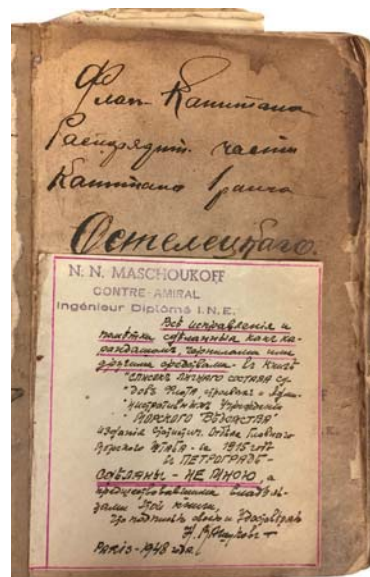 Флаг-Капитана
Распорядит. части
Капитана 1 ранга
Остелецкаго.
N. N. MASCHOUKOFF
CONTRE-AMIRAL
Ingénieur Diplômé I.N.E.
Всѣ исправленія и
помѣтки сдѣланныя какъ ка-
рандашомъ, чернилами или
другими средствами - въ книгѣ
"СПИСОКЪ ЛИЧНАГО СОСТАВА СУ-
ДОВЪ ФЛОТА, строевыхъ и Адми-
нистративныхъ учрежденій
МОРСКОГО ВѢДОМСТВА"
изданія Статист. Отдѣла Главнаго
Морского Штаба - въ 1915 году
въ ПЕТРОГРАДѢ -
СДѢЛАНЫ - НЕ МНОЮ, а
предшествовавшими владѣль-
цами этой книги,
что подписью своею и удостовѣряю
PARIS - 1948 года